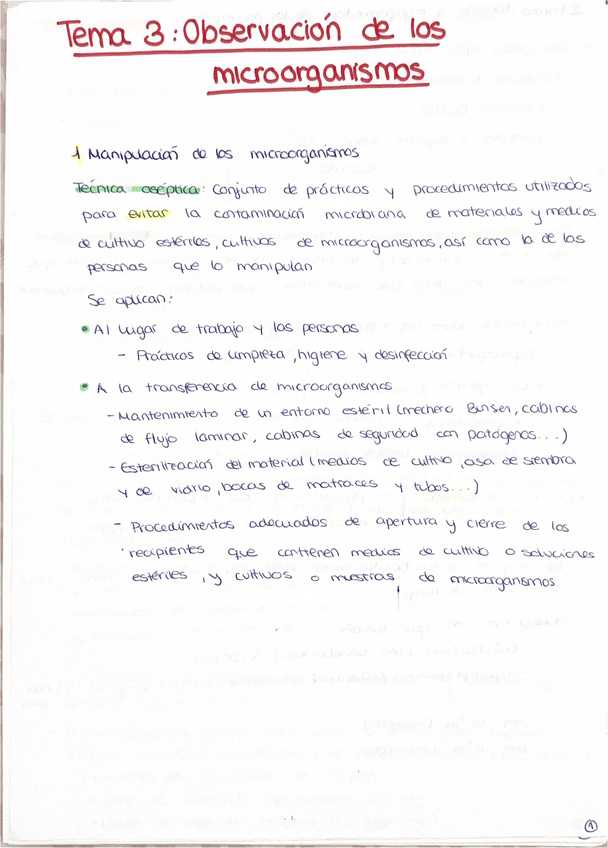 Tema 3: Observación de los
microorganismos
1 Manipulación de los microorganismos
Técnica aséptica: Conjunto de prácticas y procedimientos utilizados
para evitar la contaminación microbiana de materiales y medios
de cultivo estériles, cultivos de microorganismos, así como la de las
personas que lo manipulan
Se aplican:
• Al lugar de trabajo y las personas
- Prácticas de limpieza, higiene y desinfección
• A la transferencia de microorganismos
- Mantenimiento de un entorno estéril (mechero Bunsen, cabinas
de flujo laminar, cabinas de seguridad con patógenos...)
- Esterilización del material (medios de cultivo, asa de siembra
y de vidrio, bocas de matraces y tubos...)
- Procedimientos adecuados de apertura y cierre de los
recipientes que contienen medios de cultivo o soluciones
estériles, y cultivos o muestras de microorganismos
1